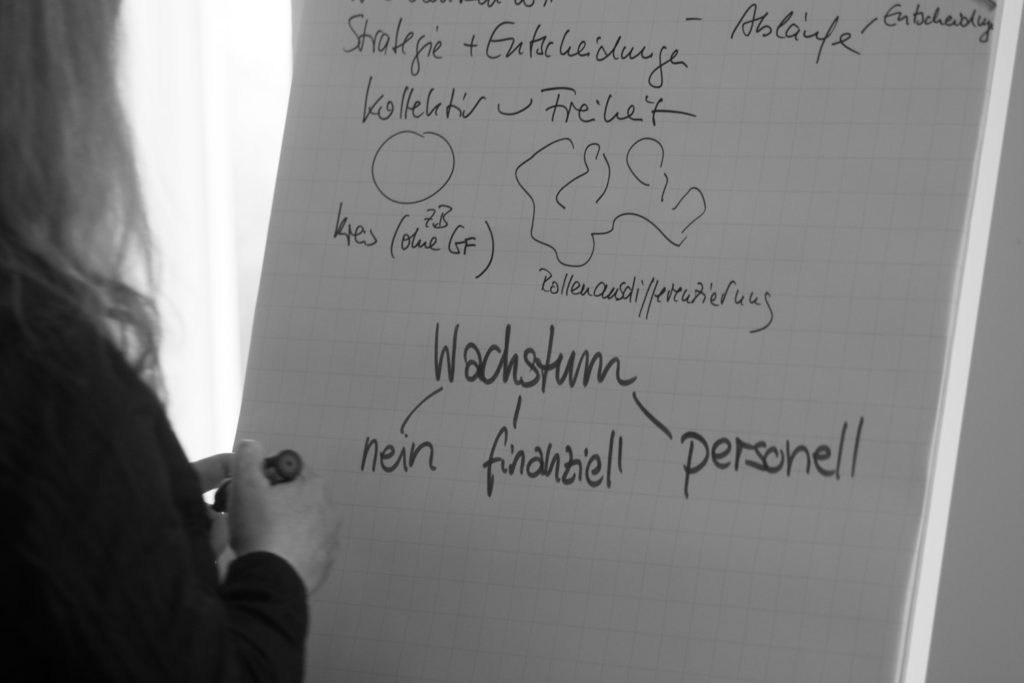 Strategie + Entscheidungen
– Abläufe / Entscheidung
Kollektiv – Freiheit
Kreis (z.B. ohne GF)
Rollenausdifferenzierung
Wachstum
nein finanziell personell